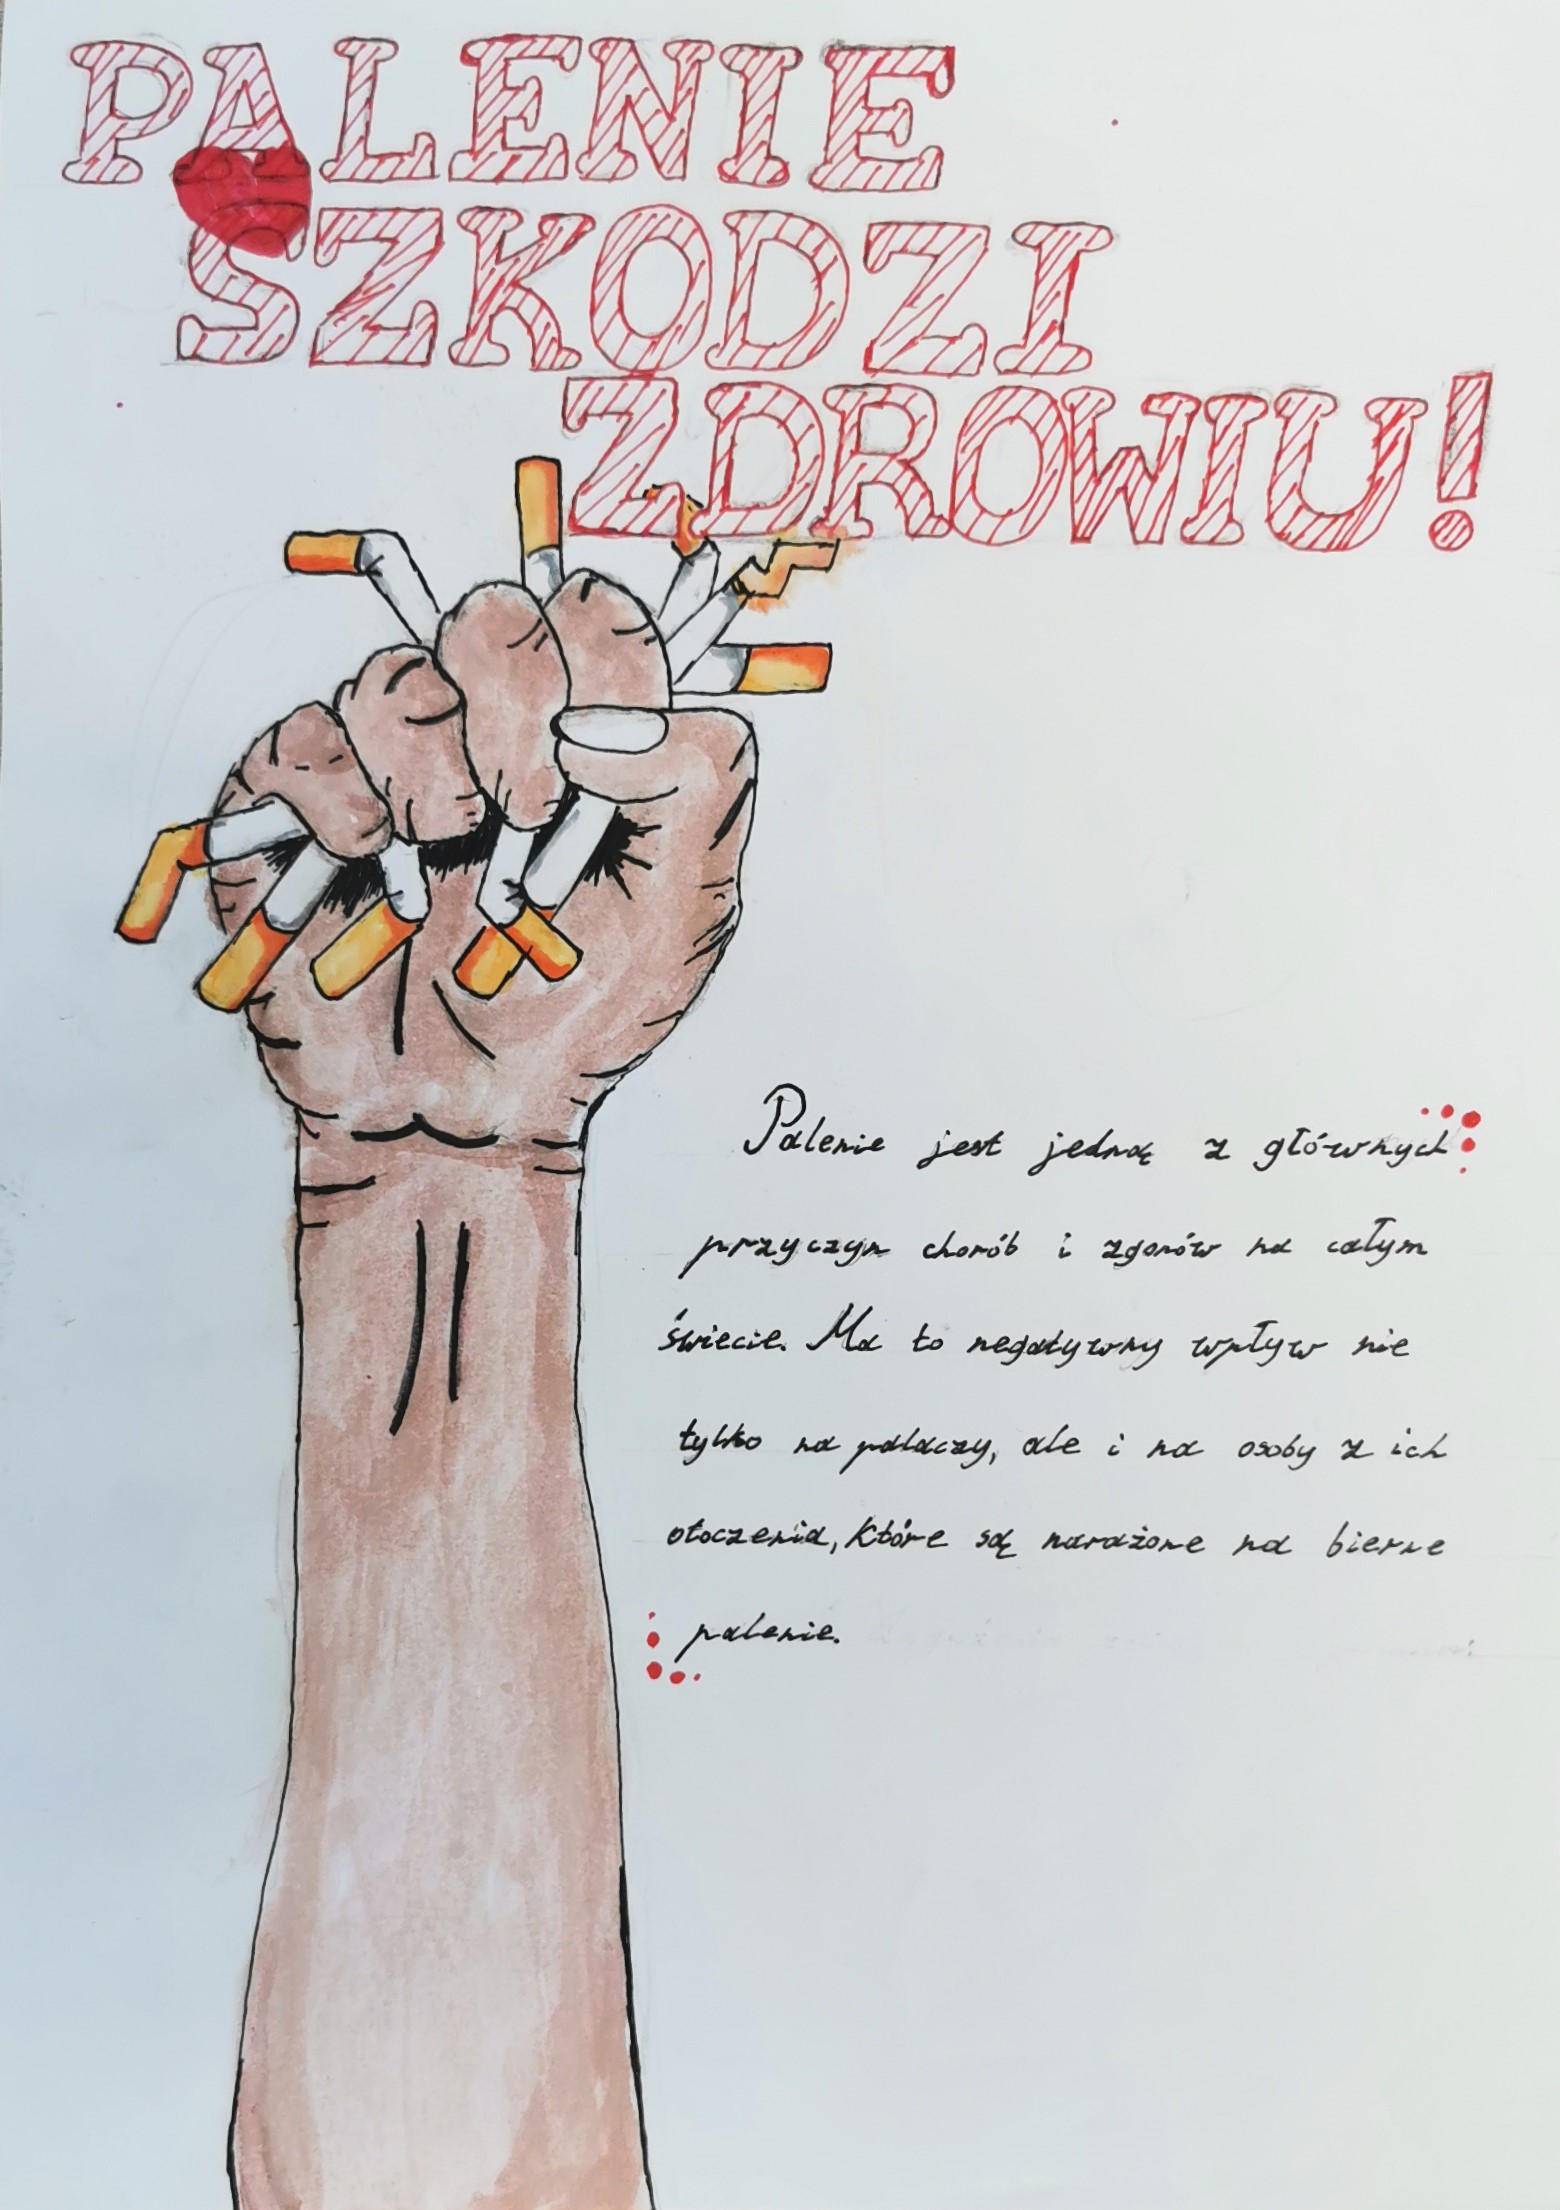 PALENIE
SZKODZI
ZDROWIU!
Palenie jest jedną z głównych
przyczyn chorób i zgonów na całym
świecie. Ma to negatywny wpływ nie
tylko na palaczy, ale i na osoby z ich
otoczenia, które są narażone na bierne
palenie.